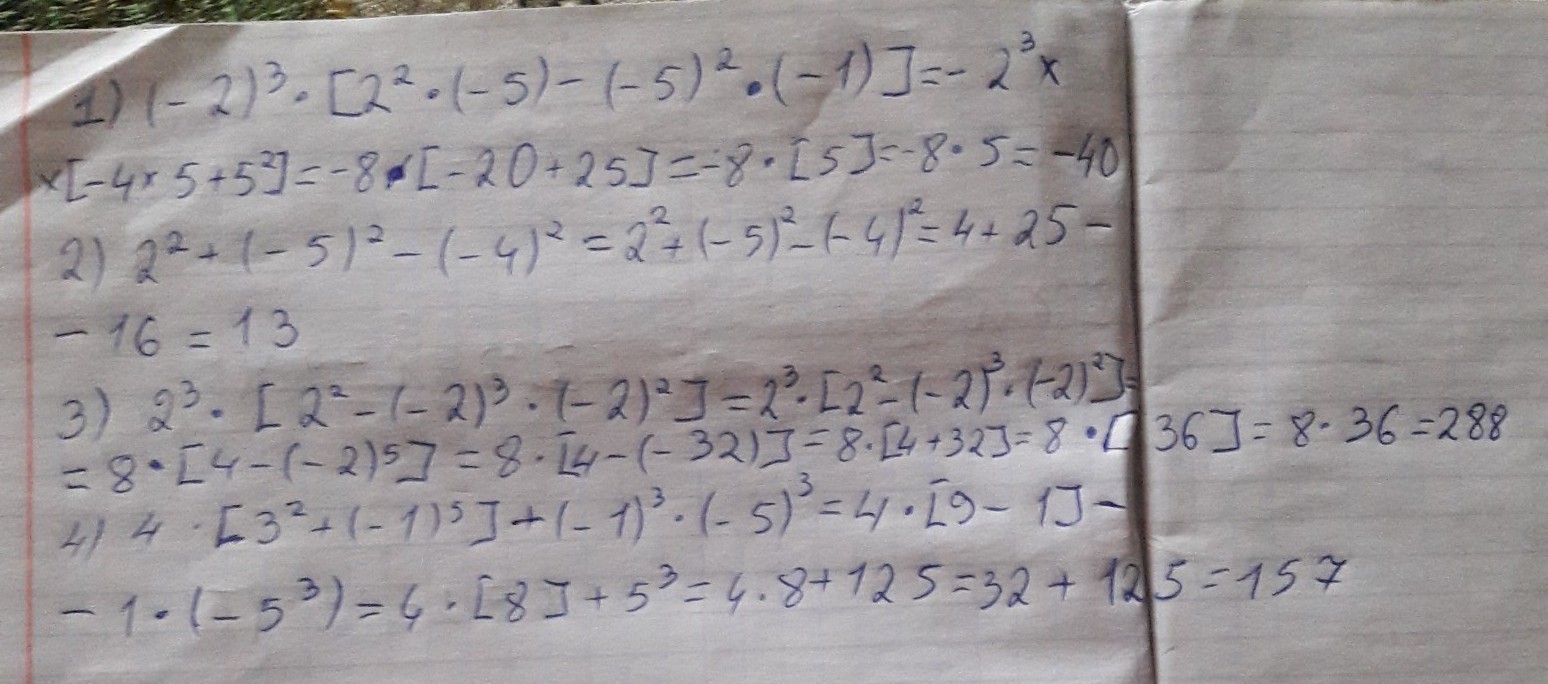 1) (-2)³·[2²·(-5)-(-5)²·(-1)]=-2³×
×[-4×5+5²]=-8·[-20+25]=-8·[5]=-8·5=-40
2) 2²+(-5)²-(-4)²=2²+(-5)²-(-4)²=4+25-
-16=13
3) 2³·[2²-(-2)³·(-2)²]=2³·[2²-(-2)³·(-2)²]=
=8·[4-(-2)⁵]=8·[4-(-32)]=8·[4+32]=8·[36]=8·36=288
4) 4·[3²+(-1)⁵]+(-1)³·(-5)³=4·[9-1]-
-1·(-5³)=4·[8]+5³=4·8+125=32+125=157